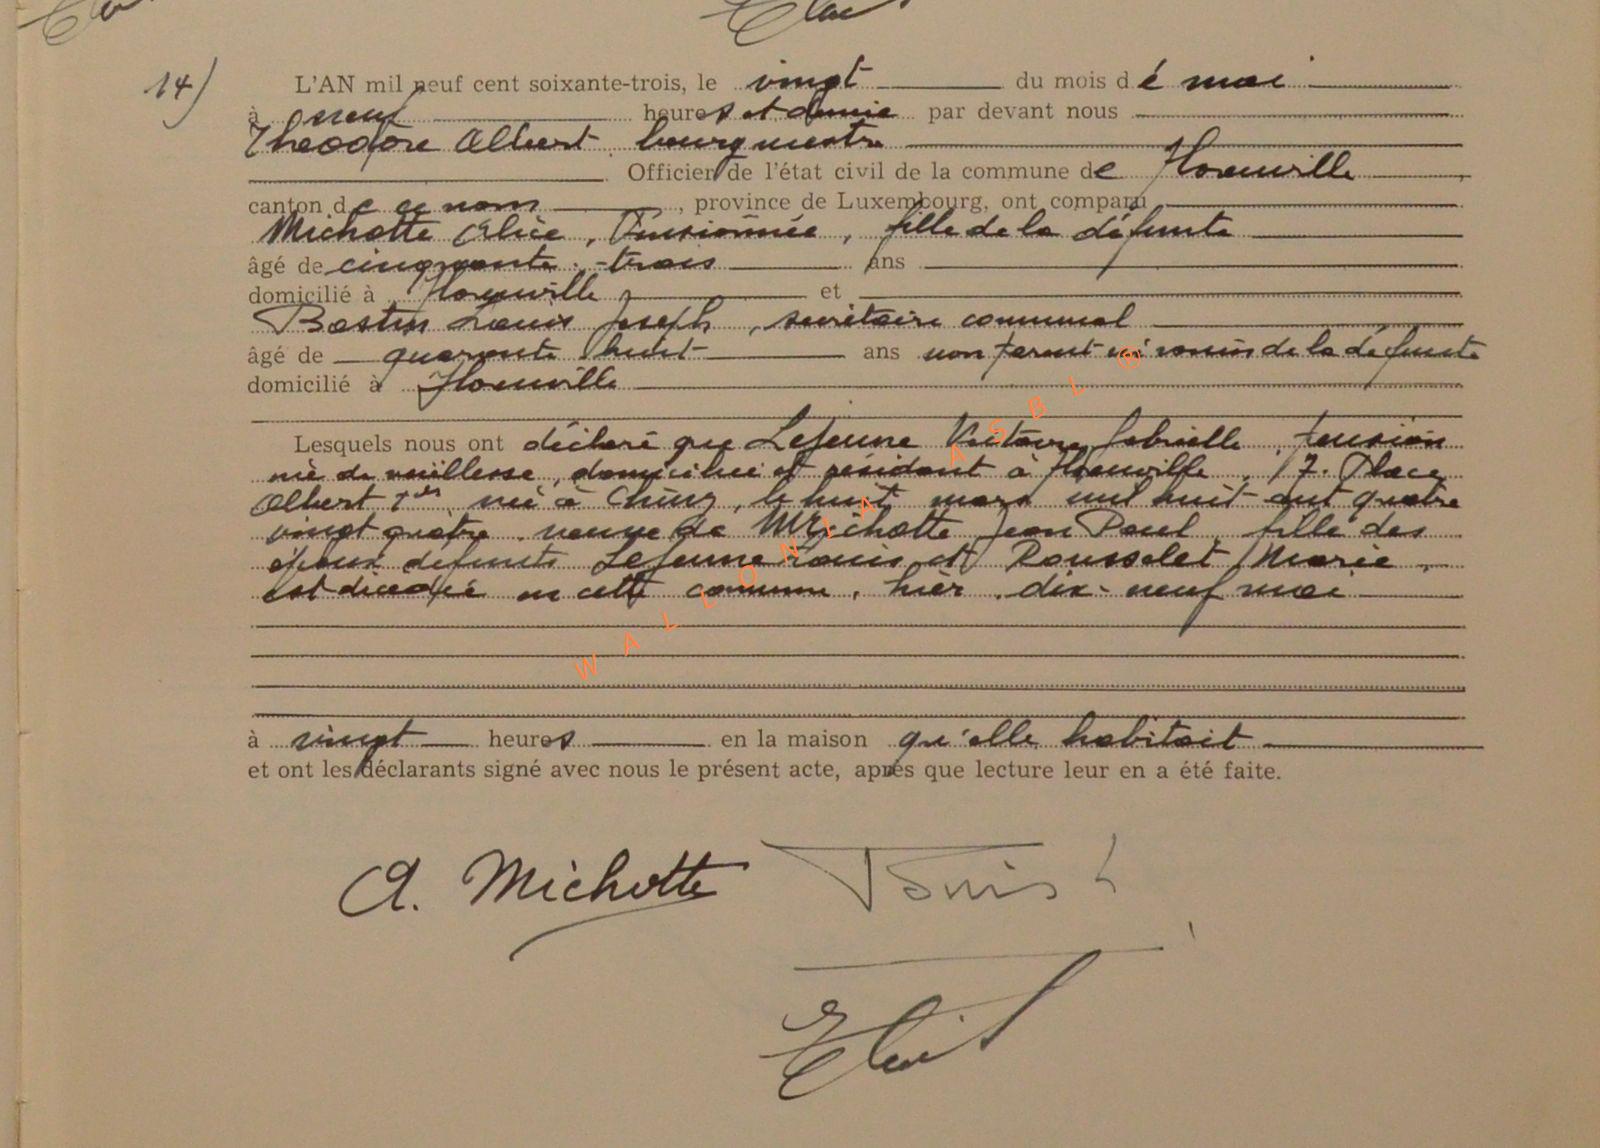 14)
L'AN mil neuf cent soixante-trois, le vingt du mois de mai
à neuf heures et demie par devant nous
Théodore Albert, bourgmestre
Officier de l'état civil de la commune de Florenville
canton de ce nom, province de Luxembourg, ont comparu
Michotte Alice, Pensionnée, fille de la défunte
âgé de cinquante-trois ans
domicilié à Florenville et
Bastin Louis Joseph, secrétaire communal
âgé de quarante huit ans non parent ni voisin de la défunte
domicilié à Florenville
Lesquels nous ont déclaré que Lejeune Victoire Gabrielle, pension
née de vieillesse, domiciliée et résidant à Florenville, 17. Place
Albert 1er née à Chiny, le huit mars mil huit cent quatre
vingt quatre, veuve de Michotte Jean Paul, fille des
époux défunts Lejeune Louis et Rousselet Marie,
est décédée en cette commune, hier, dix-neuf mai
à vingt heures en la maison qu'elle habitait
et ont les déclarants signé avec nous le présent acte, après que lecture leur en a été faite.
A. Michotte
WALLONIA ASBL ®